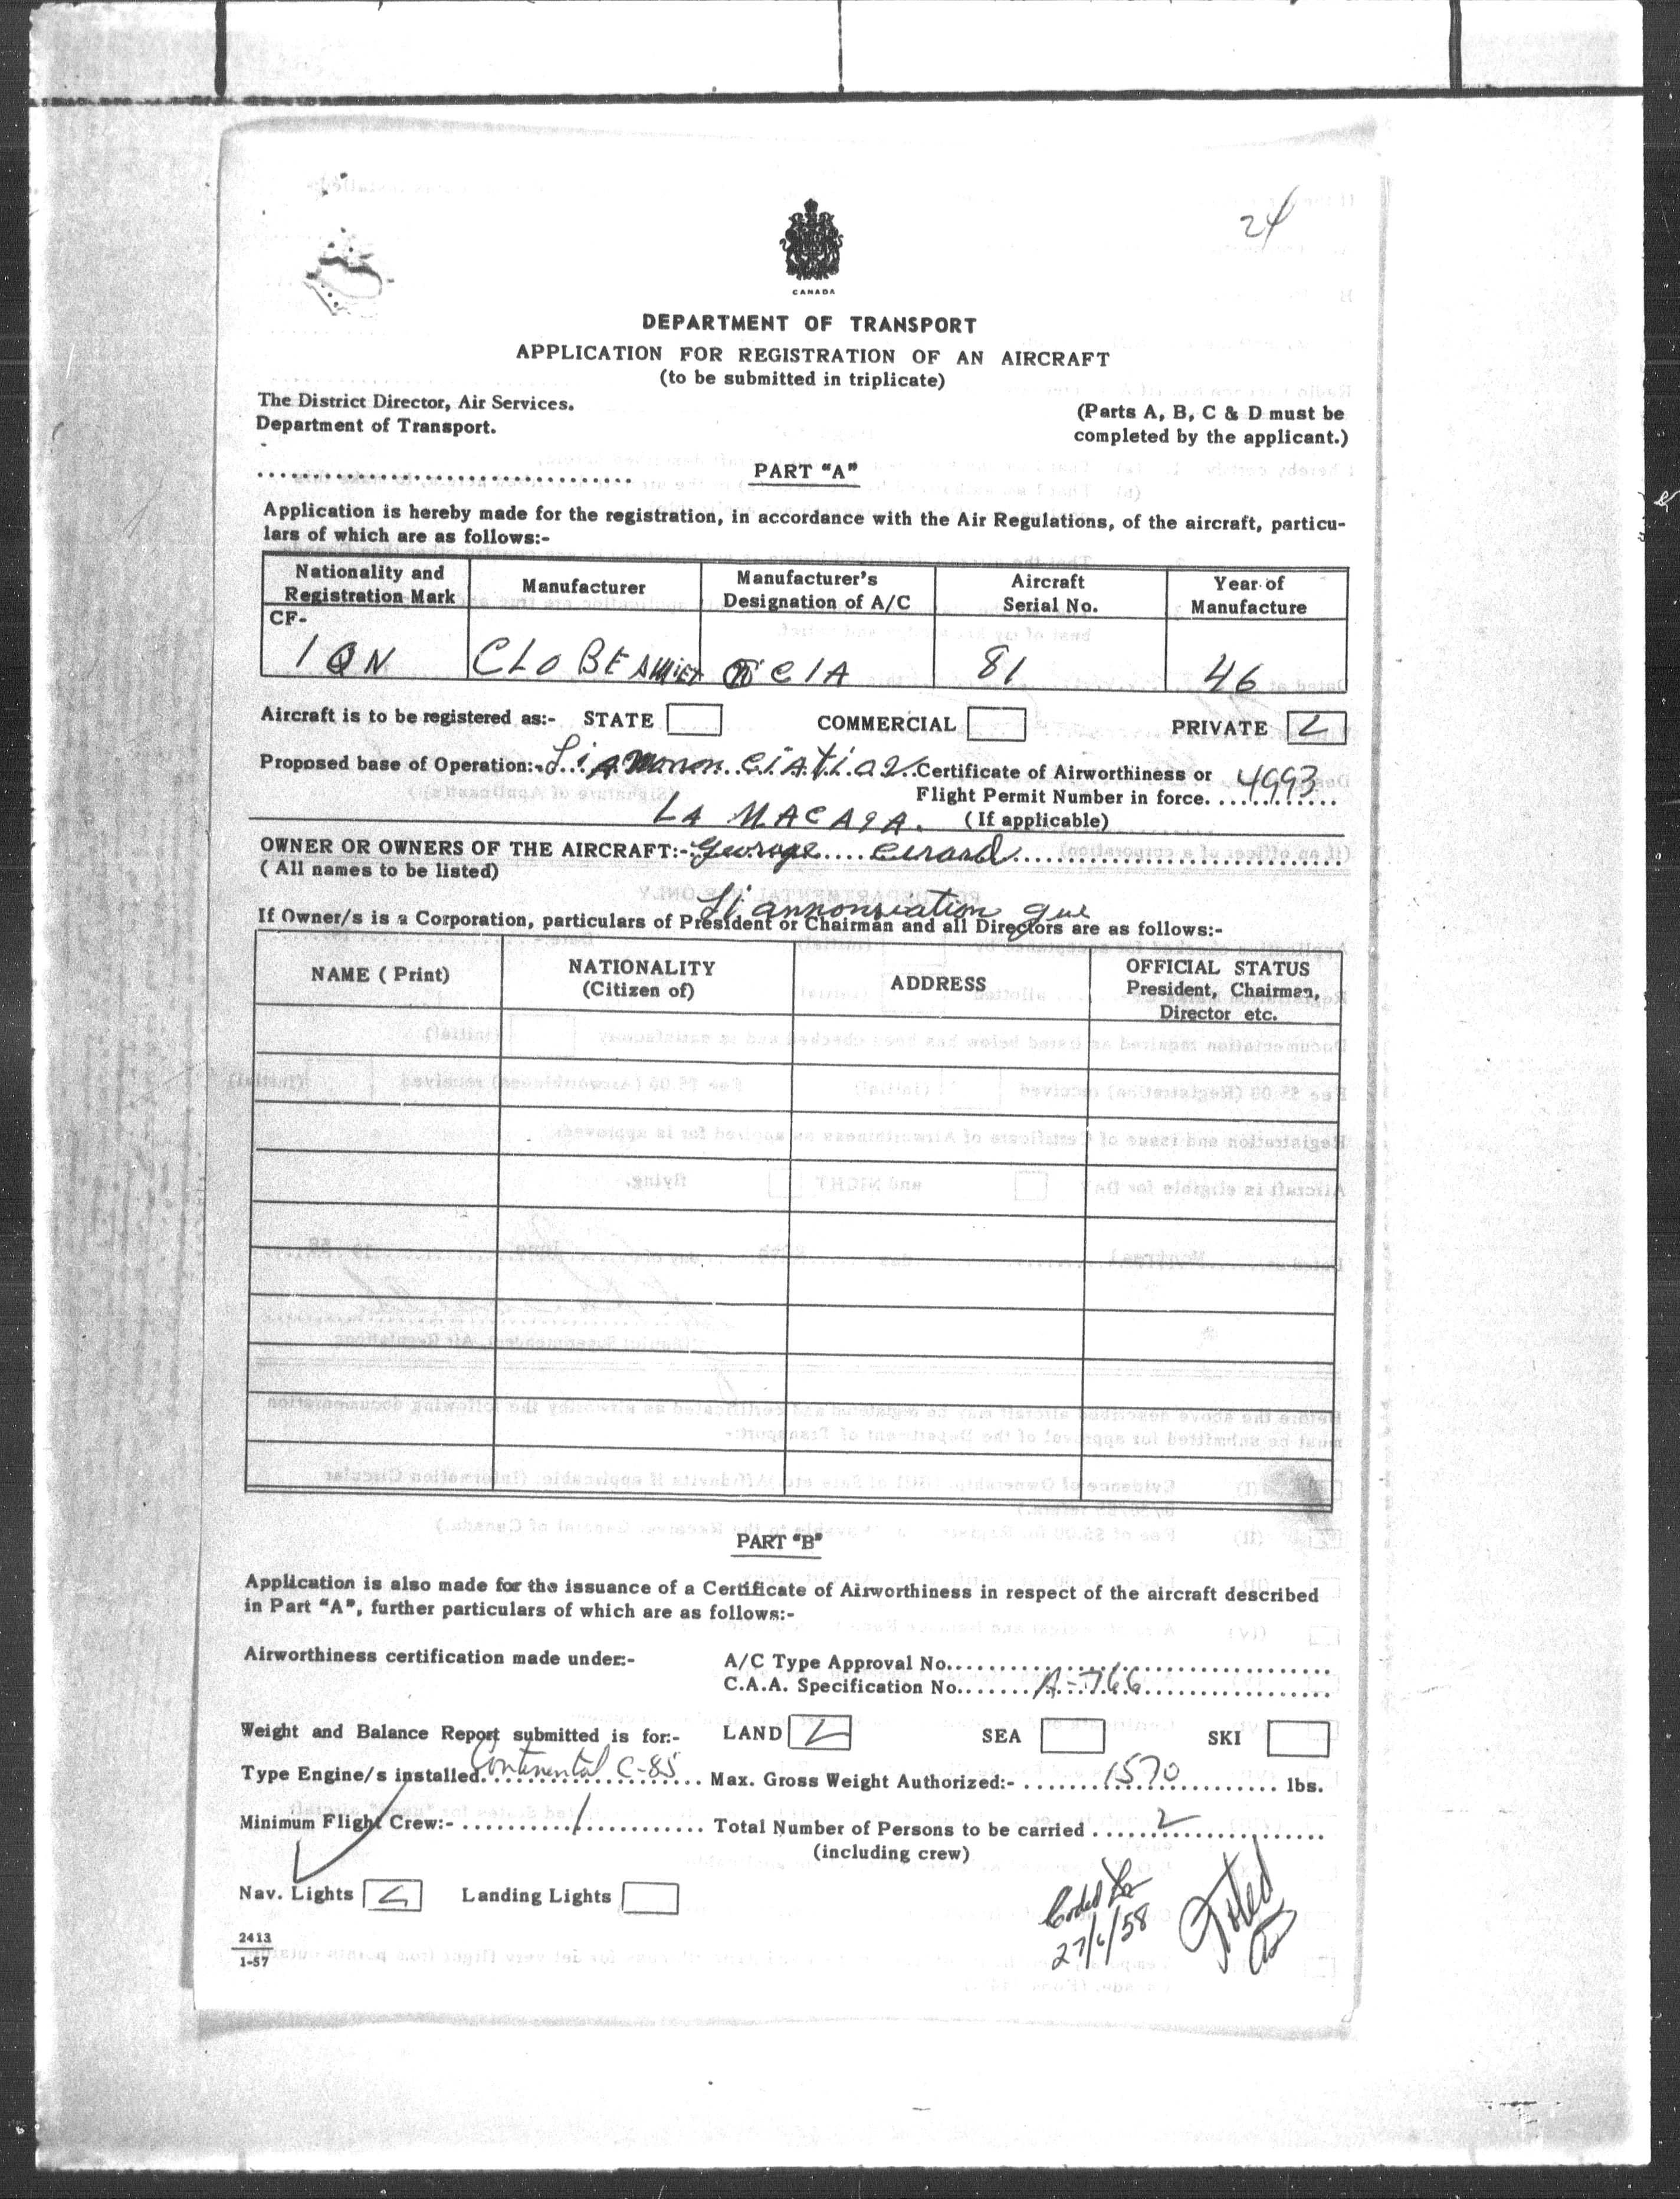 24
CANADA
DEPARTMENT OF TRANSPORT
APPLICATION FOR REGISTRATION OF AN AIRCRAFT
(to be submitted in triplicate)
The District Director, Air Services.
Department of Transport.
(Parts A, B, C & D must be
completed by the applicant.)
PART "A"
Application is hereby made for the registration, in accordance with the Air Regulations, of the aircraft, particu-
lars of which are as follows:-
Nationality and Registration Mark
Manufacturer
Manufacturer's Designation of A/C
Aircraft Serial No.
Year of Manufacture
CF-
IQN CLOBE GC1A 81 46
Aircraft is to be registered as:- STATE COMMERCIAL PRIVATE
Proposed base of Operation:- Certificate of Airworthiness or 4993
Flight Permit Number in force.
LA MACAZA. (If applicable)
OWNER OR OWNERS OF THE AIRCRAFT:- George Gerard
(All names to be listed)
L'annonciation que
If Owner/s is a Corporation, particulars of President or Chairman and all Directors are as follows:-
NAME (Print)
NATIONALITY (Citizen of)
ADDRESS
OFFICIAL STATUS President, Chairman, Director etc.
PART "B"
Application is also made for the issuance of a Certificate of Airworthiness in respect of the aircraft described
in Part "A", further particulars of which are as follows:-
Airworthiness certification made under:- A/C Type Approval No.
C.A.A. Specification No. A-766
Weight and Balance Report submitted is for:- LAND SEA SKI
Type Engine/s installed. Continental C-85 Max. Gross Weight Authorized:- 1570 lbs.
Minimum Flight Crew:- 1 Total Number of Persons to be carried 2
(including crew)
Nav. Lights Landing Lights
Coded
27/6/58
Noted
2413
1-57